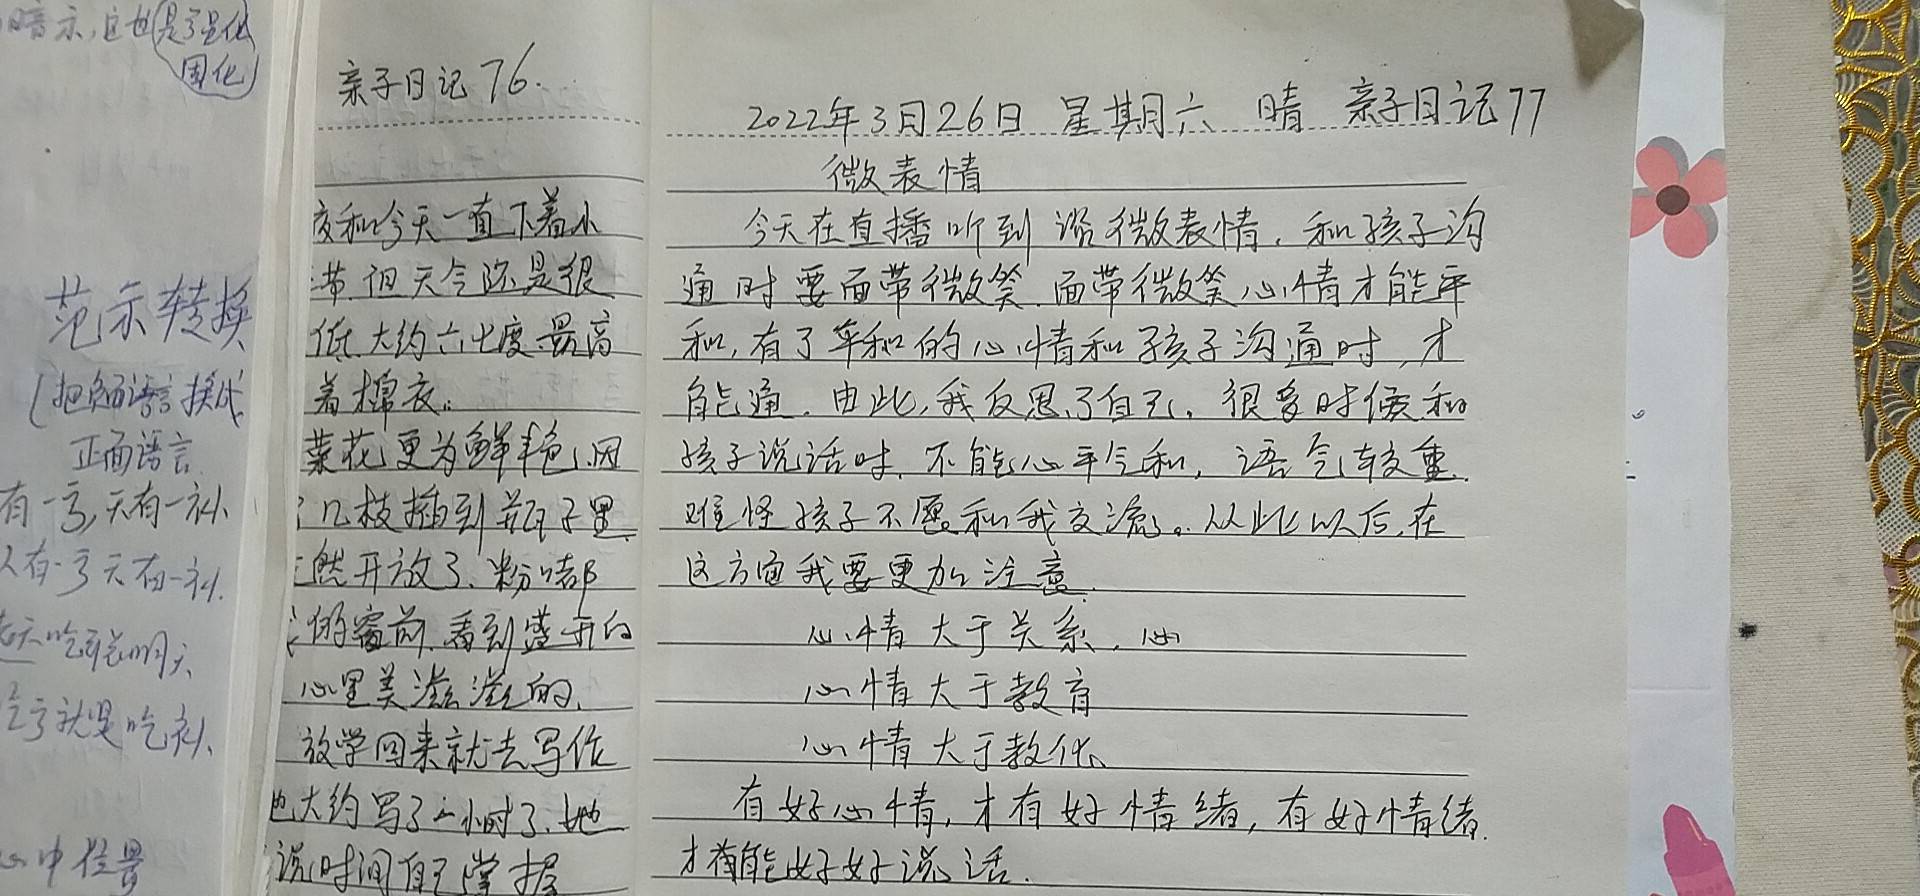 暗示,这也是了强化
固化
范示转换
(把负面语言换成
正面语言
有一亏,天有一补、
人有一亏天有一补.
吃亏就是吃补、
心中位置
亲子日记 76.
夜和今天一直下着小
带 但天气还是很
低.大约六七度.最高
着棉衣。
菜花更为鲜艳,因
几枝插到瓶子里.
然开放了.粉嘟
的窗前.看到盛开的
心里美滋滋的、
放学回来就去写作
大约写了一小时了.她
说时间自己掌握
2022年3月26日 星期六 晴 亲子日记77
微表情
今天在直播听到谈微表情.和孩子沟
通时要面带微笑.面带微笑心情才能平
和,有了平和的心情和孩子沟通时,才
能通.由此,我反思了自己.很多时候和
孩子说话时.不能心平气和,语气较重.
难怪孩子不愿和我交流。从此以后,在
这方面我要更加注意.
心情大于关系.心
心情大于教育
心情大于教化
有好心情,才有好情绪,有好情绪.
才能好好说话.